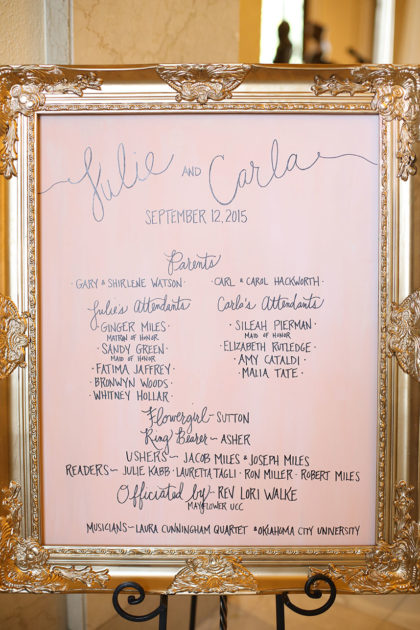 Julie AND Carla
SEPTEMBER 12, 2015
Parents
· GARY & SHIRLENE WATSON · · CARL & CAROL HACKWORTH ·
Julie's Attendants
· GINGER MILES ·
MATRON OF HONOR
· SANDY GREEN ·
MAID OF HONOR
· FATIMA JAFFREY ·
· BRONWYN WOODS ·
· WHITNEY HOLLAR ·
Carla's Attendants
· SILEAH PIERMAN ·
MAID OF HONOR
· ELIZABETH RUTLEDGE ·
· AMY CATALDI ·
· MALIA TATE ·
Flowergirl ~ SUTTON
Ring Bearer ~ ASHER
USHERS ~ JACOB MILES & JOSEPH MILES
READERS ~ JULIE KABB · LAURETTA TAGLI · RON MILER · ROBERT MILES
Officiated by ~ REV LORI WALKE
MAYFLOWER UCC
MUSICIANS ~ LAURA CUNNINGHAM QUARTET & OKLAHOMA CITY UNIVERSITY